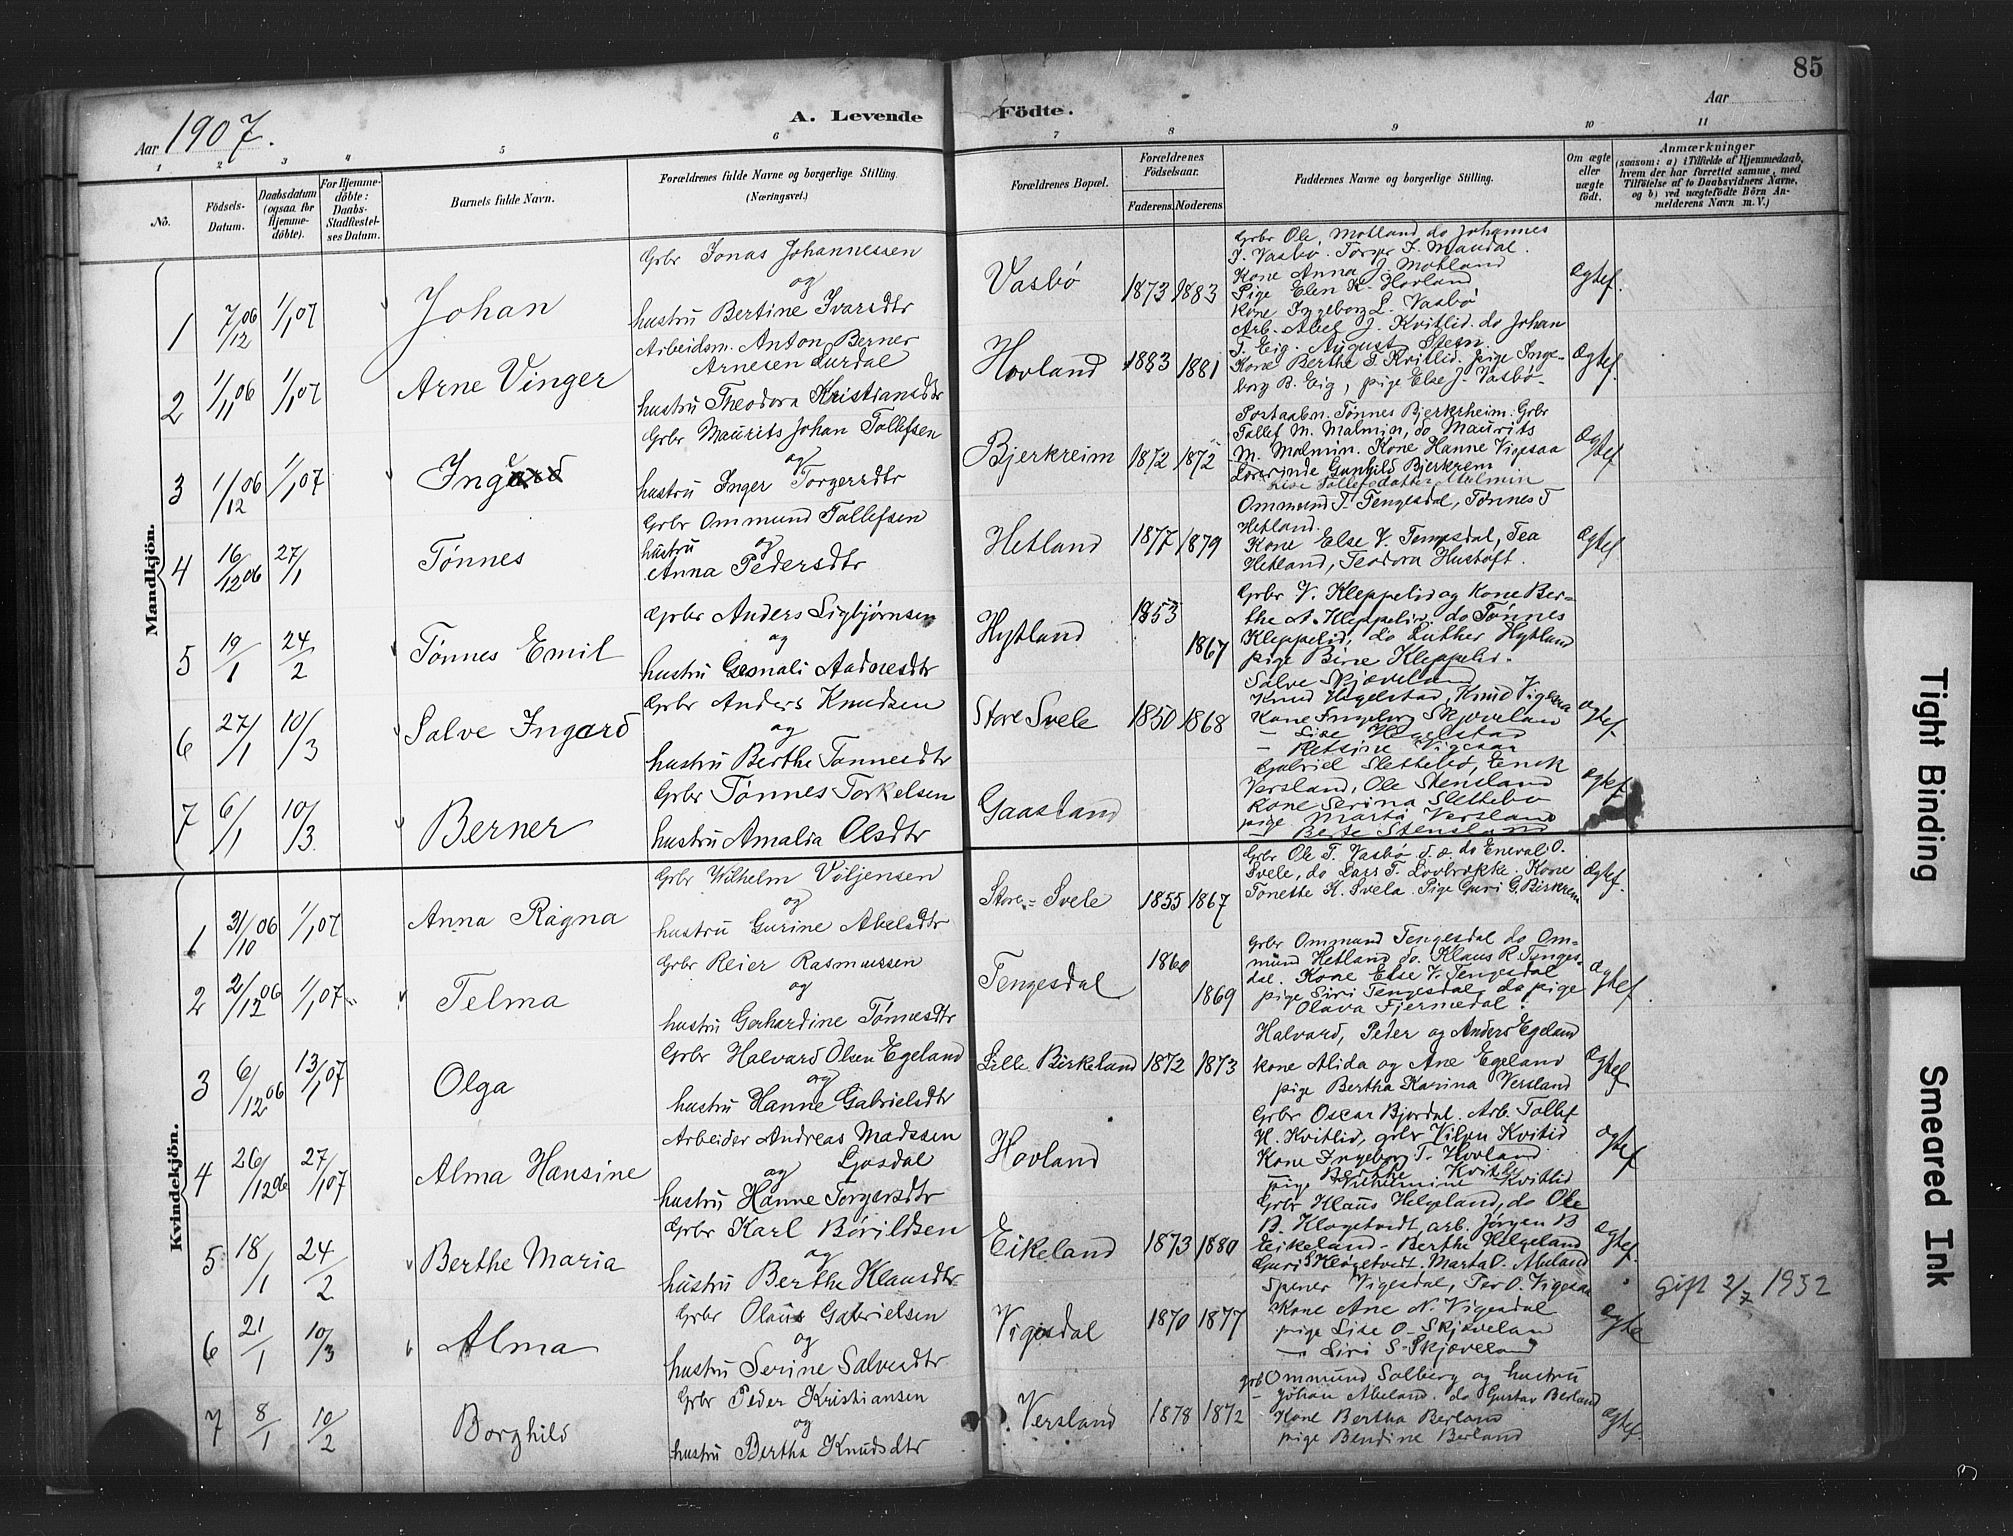 85
Aar 1907.
A. Levende Födte.
Aar
1 2 3 4 5 6 7 8 9 10 11
No.
Födsels-Datum.
Daabsdatum (ogsaa for Hjemme-döbte).
For Hjemme-döbte: Daabs-Stadfæstel-ses Datum.
Barnets fulde Navn.
Forældrenes fulde Navne og borgerlige Stilling. (Næringsvei.)
Forældrenes Bopæl.
Forældrenes Födselsaar.
Faderens. Moderens.
Faddernes Navne og borgerlige Stilling.
Om ægte eller uægte födt.
Anmærkninger
(saasom: a) i Tilfælde af Hjemmedaab, hvem der har forrettet samme, med Tilföielse af to Daabsvidners Navne, og b) ved uægtefödte Börn An-melderens Navn m. V.)
Mandkjön.
1 7/12 06 1/1 07 Johan
Grbr Jonas Johannessen
og
hustru Bertine Ivarsdtr
Vasbø 1873 1883
Grbr Ole Motland do Johannes
J. Vasbø. Torger J. Maudal.
Kone Anna J. Motland
Pige Elen K. Hovland
Kone Ingeborg L. Vasbø
Ægtef.
2 1/11 06 1/1 07 Arne Vinger
Arbeidsm. Anton Berner
Arnesen Lurdal
hustru Theodora Kristiansdtr
Hovland 1883 1881
Arb. Abel J. Kvitlid. do Johan
T. Eig. August Steen.
Kone Berthe T. Kvitlid. pige Inge-
borg B. Eig, pige Else J. Vasbø.
Ægtef.
3 1/12 06 1/1 07
Grbr Maurits Johan Tollefsen
og
hustru Inger Torgersdtr
Bjerkreim 1872 1872
Postaabn. Tønnes Bjerkrheim. Grbr
Tollef M. Malmin, do Maurits
M. Malmin. Kone Hanne Vigesaa
Gunhild Bjerkrem
Tollefsdatter Malmin
Ægtef
4 16/12 06 27/1 Tønnes
Grbr Ommund Tollefsen
hustru og
Anna Pedersdtr
Hetland 1877 1879
Ommund T. Tengesdal, Tønnes T
Hetland.
Kone Else V. Tengesdal, Tea
Hetland, Teodora Hustoft.
Ægtef
5 19/1 24/2 Tønnes Emil
Grbr Anders Sigbjørnsen
og
hustru Gesmali Aadnesdtr
Hytland 1853 1867
Grbr V. Kleppelid og Kone Ber-
the A. Kleppelid. do Tønnes
Kleppelid, do Luther Hytland
pige Birte Kleppelid.
6 27/1 10/3 Salve Ingard
Grbr Anders Knudsen
og
hustru Berthe Tønnesdtr
Store Svele 1850 1868
Salve Skjæveland
Knud Hegelstad, Knud Vigesaa
Kone Ingeborg Skjæveland
— Lise Hegelstad
— Retsine Vigesaa
Ægtef.
7 6/1 10/3 Berner
Grbr Tønnes Torkelsen
hustru Amalia Olsdtr
Gaasland
Gabriel Slettebø, Enok
Versland, Ole Stensland
Kone Serina Slettebø
pige Marta Versland
— Berte Stensland
Ægtef
Kvindekjön.
1 31/10 06 1/1 07 Anna Ragna
Grbr Wilhelm Veljensen
og
hustru Gurine Abelsdtr
Store-Svele 1855 1867
Grbr Ole T. Vasbø d. æ. do Eneval O.
Svele, do Lars T. Lovbrække. Kone
Tonette K. Svela. Pige Guri G. Birkrem
Ægtef.
2 2/12 06 1/1 07 Telma
Grbr Reier Rasmussen
og
hustru Gerhardine Tønnesdtr
Tengesdal 1860 1869
Grbr Ommund Tengesdal do Om-
mund Hetland do. Klaus R. Tenges-
dal. Kone Else V. Tengesdal
pige Siri Tengesdal do pige
Olava Fjermedal.
Ægtef.
3 6/12 06 13/1 07 Olga
Grbr Halvard Olsen Egeland
og
hustru Hanne Gabrielsdtr
Lille Birkeland 1872 1873
Halvard, Peder og Anders Egeland
kone Alida og Ane Egeland
pige Bertha Karina Versland
Ægtef
4 26/12 06 27/1 07 Alma Hansine
Arbeider Andreas Madssen
og Ljosdal
hustru Hanne Torgersdtr
Hovland
Grbr Oscar Bjordal. Arb. Tollef
H. Kvitlid, grbr Vilen Kvitid
Kone Ingeborg T. Hovland
— Berthe Kvitle
pige Wilhelmine Kvitlid
Ægtef
5 18/1 24/2 Berthe Maria
Grbr Karl Børildsen
og
hustru Berthe Klausdtr
Eikeland 1873 1880
Grbr Klaus Helgeland, do Ole
B. Kløgetvedt, arb. Jørgen B
Eikeland - Berthe Helgeland
Guri Kløgetvedt. Marta O. Aluland
Ægtef.
6 21/1 10/3 Alma
Grbr Olaus Gabrielsen
og
hustru Serine Salvesdtr
Vigesdal 1870 1877
Vigesdal, Per O. Vigesaa
Kone Ane N. Vigesdal
pige Lise O. Skjæveland
— Siri S. Skjæveland
Ægte
Gift 2/7 1932
7 8/1 10/2 Borghild
Grbr Peder Kristiansen
og
hustru Bertha Knudsdtr
Versland 1878 1872
grb Ommund Solberg og hustru
— Johan Abeland. do Gustav Berland
Kone Bertha Berland
pige Bendine Berland
Ægtef.
Tight Binding
Smeared Ink